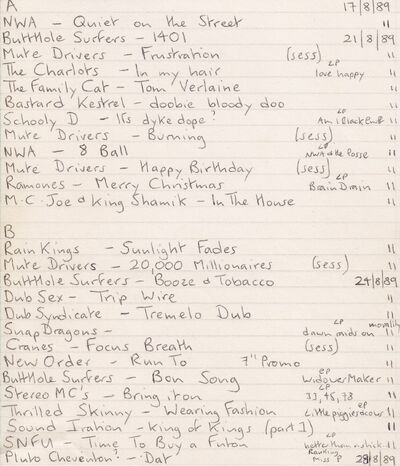 A 17/8/89
NWA - Quiet on the Street "
Butthole Surfers - 1401 21/8/89
Mute Drivers - Frustration (sess) "
The Charlots - In my hair LP love happy "
The Family Cat - Tom Verlaine "
Bastard Kestrel - doobie bloody doo "
Schooly D - It's dyke dope? LP Am I Black "
Mute Drivers - Burning (sess) "
NWA - 8 Ball LP NWA & the Posse "
Mute Drivers - Happy Birthday (sess) "
Ramones - Merry Christmas LP Brain Drain "
M.C. Joe & King Shamik - In The House "
B
Rain Kings - Sunlight Fades "
Mute Drivers - 20,000 Millionaires (sess) "
Butthole Surfers - Booze & Tobacco 24/8/89
Dub Sex - Trip Wire "
Dub Syndicate - Tremelo Dub "
Snap Dragons - LP dawn raids on morality "
Cranes - Focus Breath (sess) "
New Order - Run To 7" Promo "
Butthole Surfers - Bon Song EP Widower Maker "
Stereo MC's - Bring it on LP 33, 45, 78 "
Thrilled Skinny - Wearing Fashion EP Little piggies "
Sound Iration - King of Kings (part 1) "
SNFU - Time To Buy a Futon LP better than a stick "
Pluto Cheventon? - Dat Ranking Miss P 28/8/89